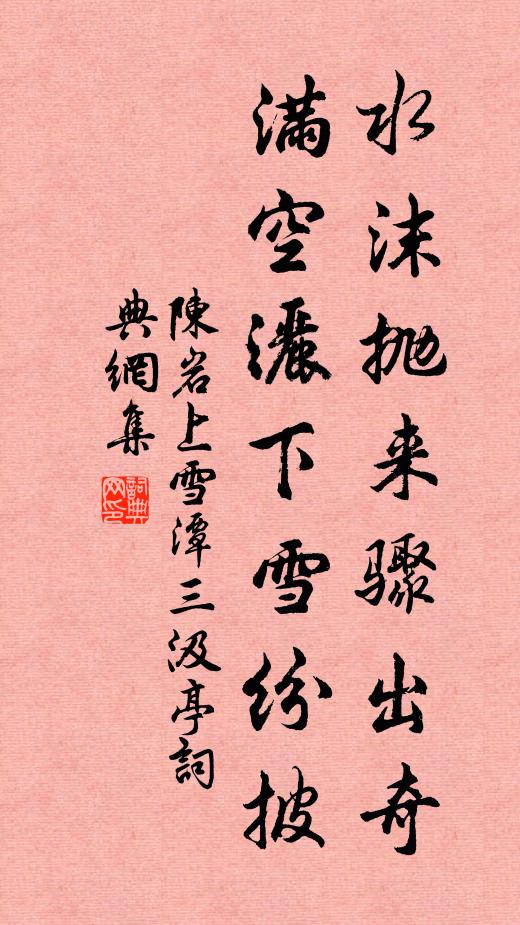 水沫抛来骤出奇
满空灑下雪纷披
陳岩上雪潭三汲亭詞
典網集
詞典網印